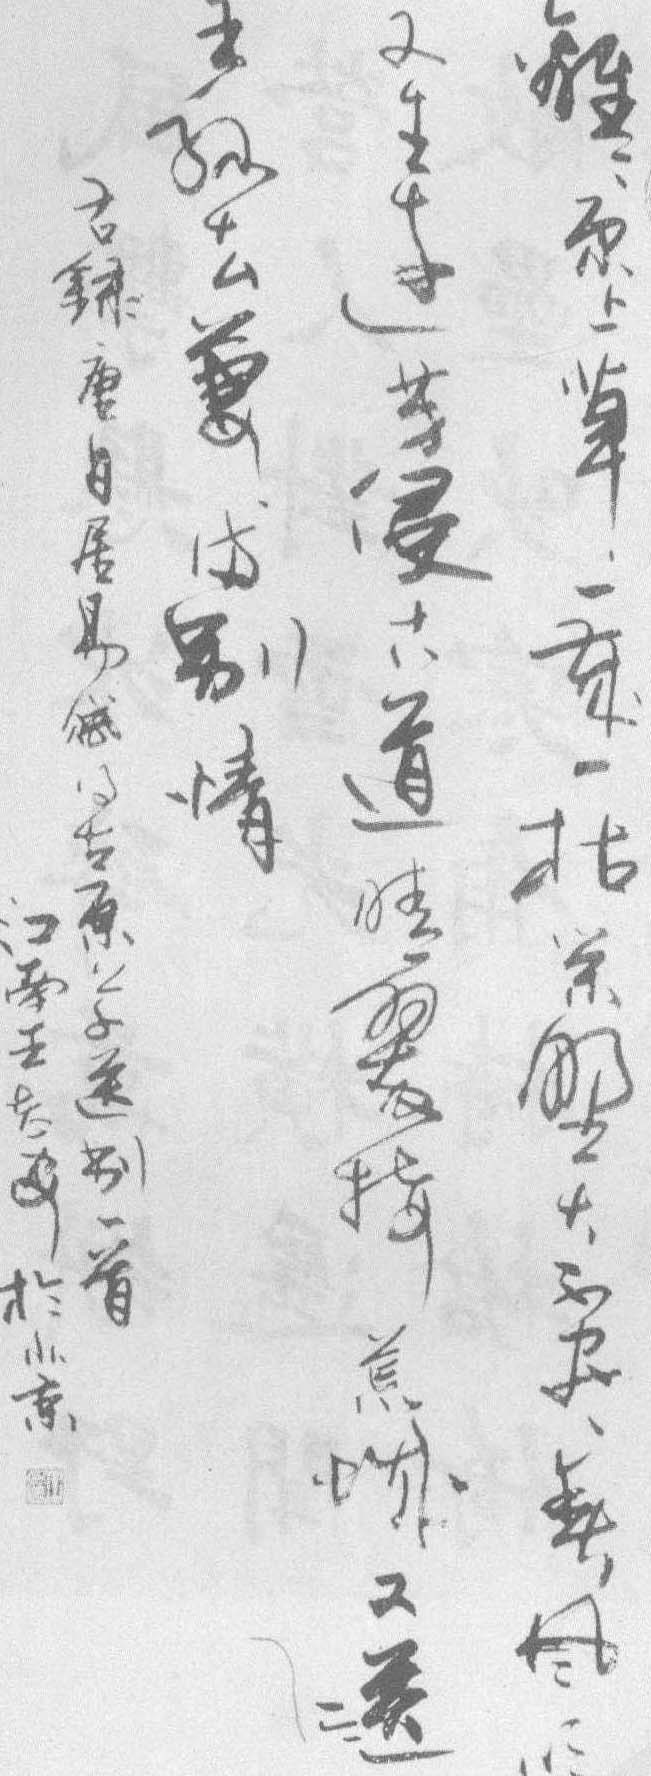 離〻原上草一歲一枯榮野火不盡春風吹
又生遠芳侵古道晴翠接荒城又送
王孫去萋滿別情
右錄唐白居易賦得古原草送別一首
江南王於北京